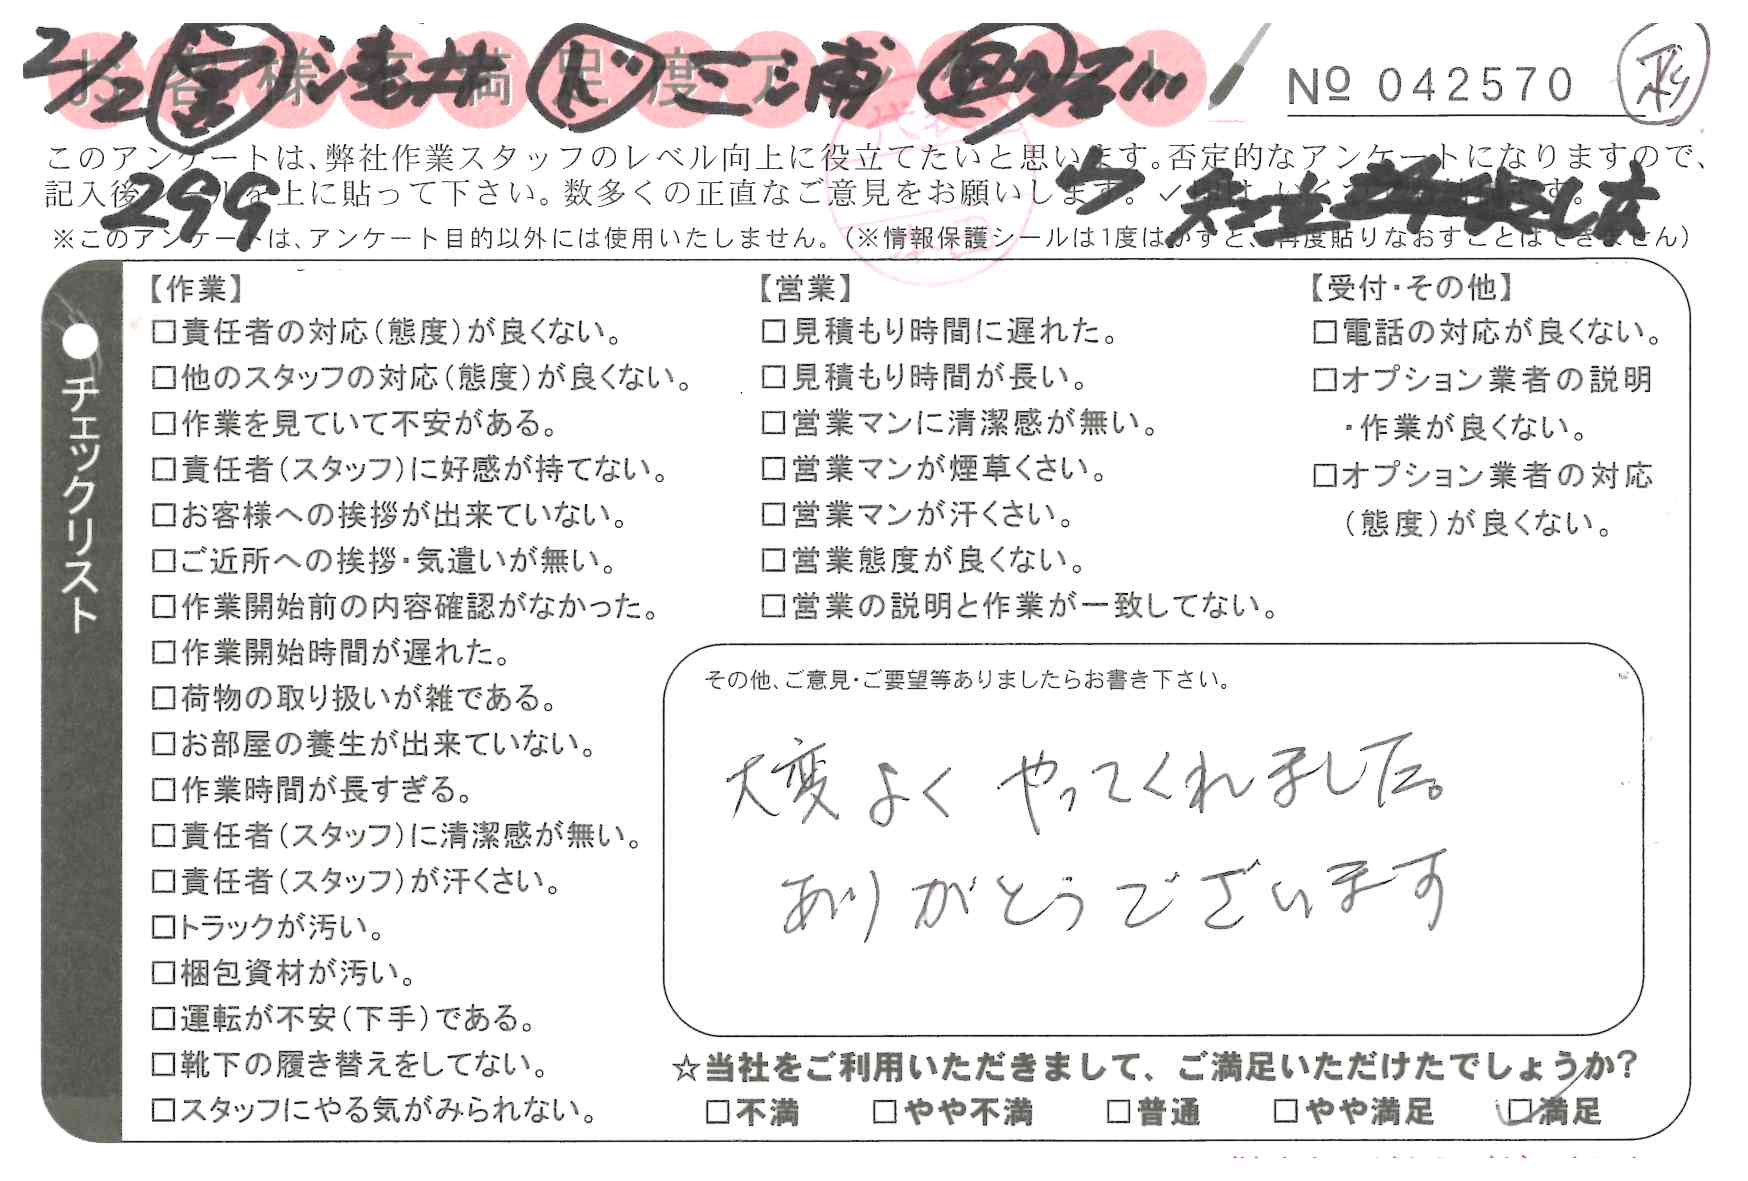 お客様不満足度アンケート
2/2 営 浅井 ド 三浦
No 042570
このアンケートは、弊社作業スタッフのレベル向上に役立てたいと思います。否定的なアンケートになりますので、
記入後シールを上に貼って下さい。数多くの正直なご意見をお願いします。
299
※このアンケートは、アンケート目的以外には使用いたしません。(※情報保護シールは1度はがすと、再度貼りなおすことはできません)
●チェックリスト
【作業】
□責任者の対応(態度)が良くない。
□他のスタッフの対応(態度)が良くない。
□作業を見ていて不安がある。
□責任者(スタッフ)に好感が持てない。
□お客様への挨拶が出来ていない。
□ご近所への挨拶・気遣いが無い。
□作業開始前の内容確認がなかった。
□作業開始時間が遅れた。
□荷物の取り扱いが雑である。
□お部屋の養生が出来ていない。
□作業時間が長すぎる。
□責任者(スタッフ)に清潔感が無い。
□責任者(スタッフ)が汗くさい。
□トラックが汚い。
□梱包資材が汚い。
□運転が不安(下手)である。
□靴下の履き替えをしてない。
□スタッフにやる気がみられない。
【営業】
□見積もり時間に遅れた。
□見積もり時間が長い。
□営業マンに清潔感が無い。
□営業マンが煙草くさい。
□営業マンが汗くさい。
□営業態度が良くない。
□営業の説明と作業が一致してない。
【受付・その他】
□電話の対応が良くない。
□オプション業者の説明
・作業が良くない。
□オプション業者の対応
(態度)が良くない。
その他、ご意見・ご要望等ありましたらお書き下さい。
大変よくやってくれました。
ありがとうございます
☆当社をご利用いただきまして、ご満足いただけたでしょうか?
□不満 □やや不満 □普通 □やや満足 ☑満足